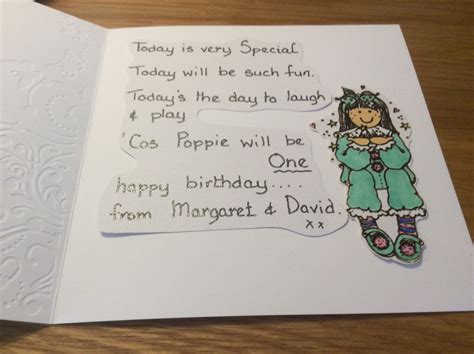 Today is very Special.
Today will be such fun.
Today's the day to laugh
& play
'Cos Poppie will be
One
happy birthday....
from Margaret & David.
x x